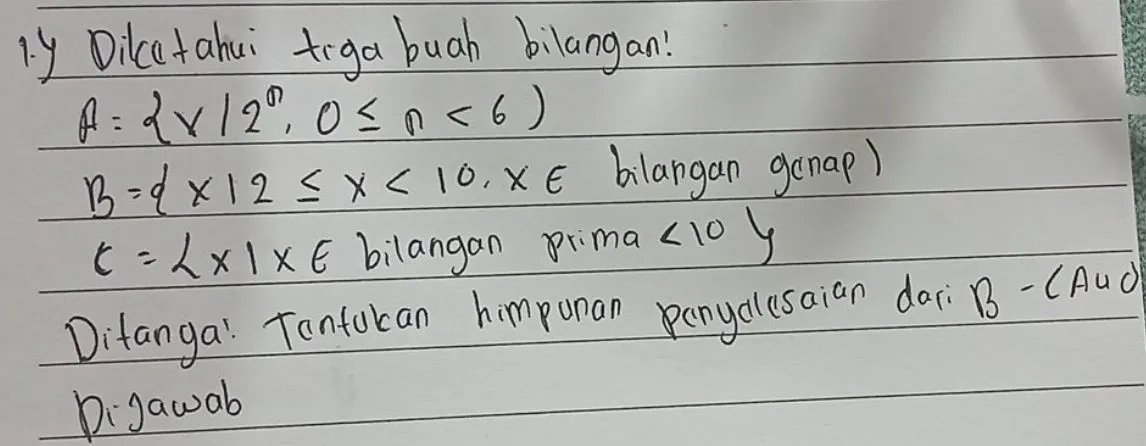 1.y Diketahui tiga buah bilangan!
A = {x | 2ⁿ, 0 ≤ n < 6)
B = { x | 2 ≤ x < 10, x ∈ bilangan genap)
C = { x | x ∈ bilangan prima < 10 }
Ditanya: Tentukan himpunan penyelesaian dari B - (A ∪ C)
Dijawab